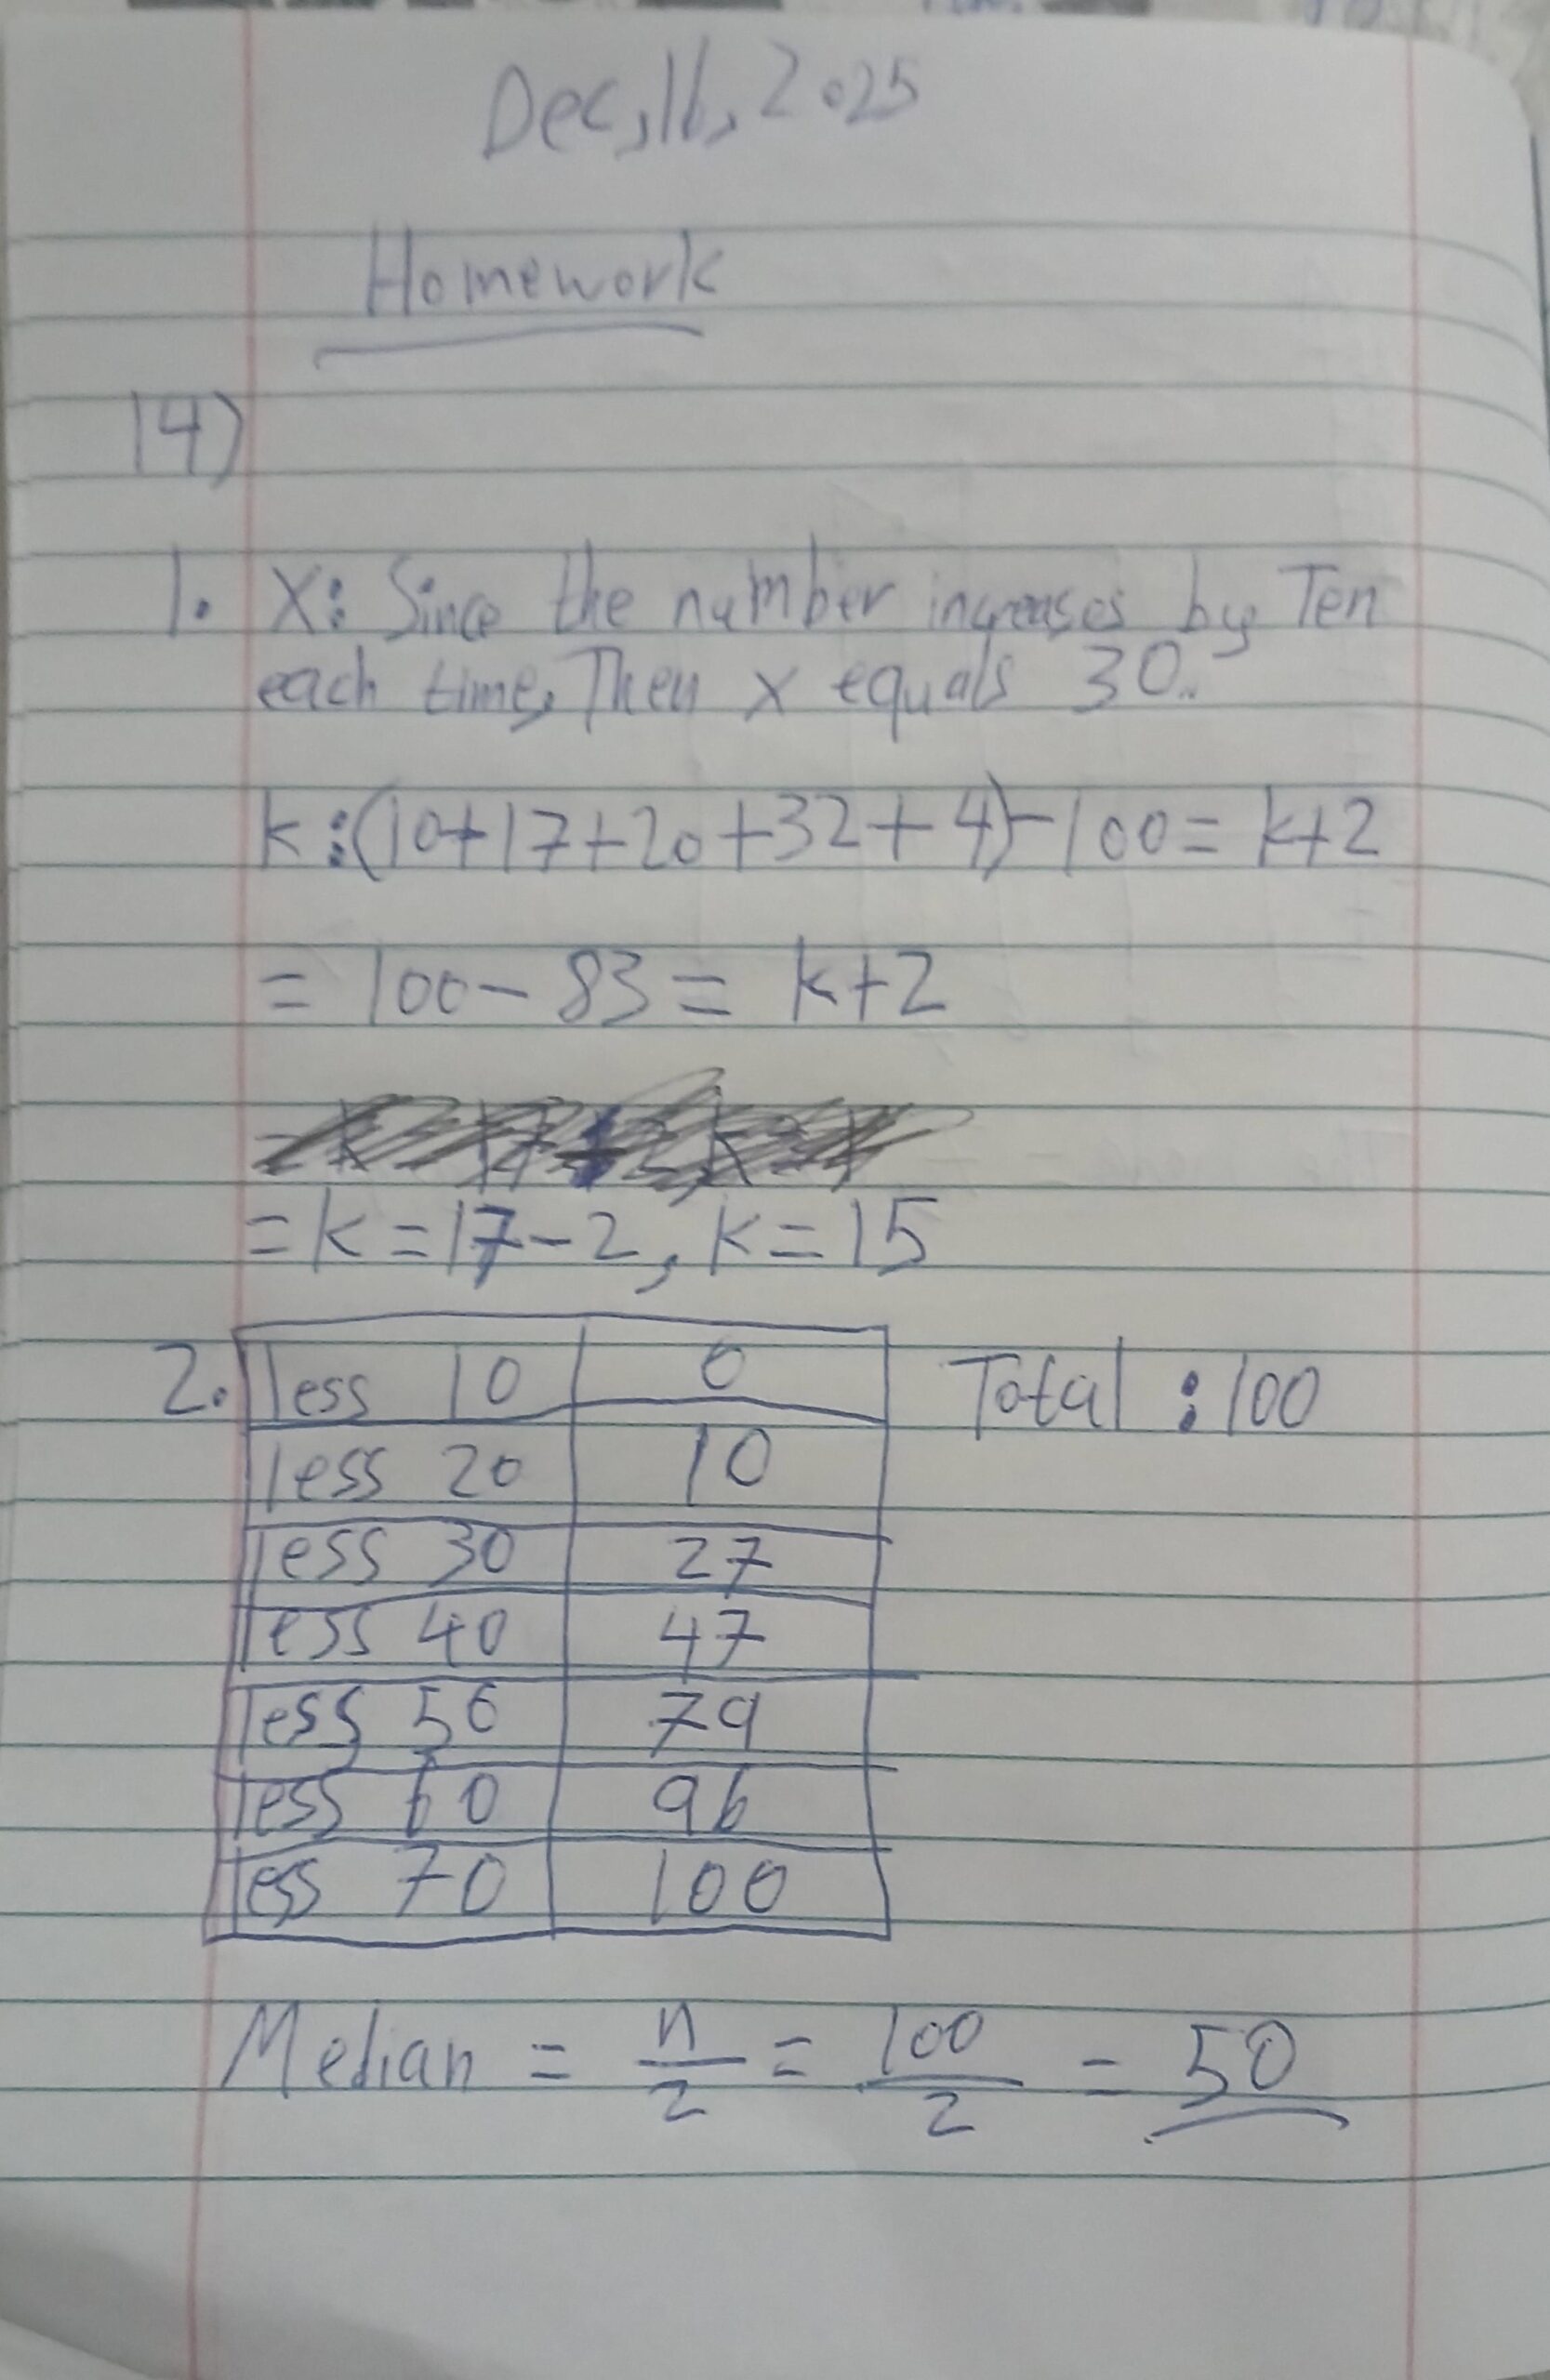 Dec,16,2025
Homework
14)
1. X: Since the number increases by Ten
each time, Then x equals 30..
k:(10+17+20+32+4)-100= k+2
= 100-83= k+2
=k=17-2, k=15
2. less 10 0 Total : 100
less 20 10
less 30 27
less 40 47
less 50 79
less 60 96
less 70 100
Median = n/2 = 100/2 = 50